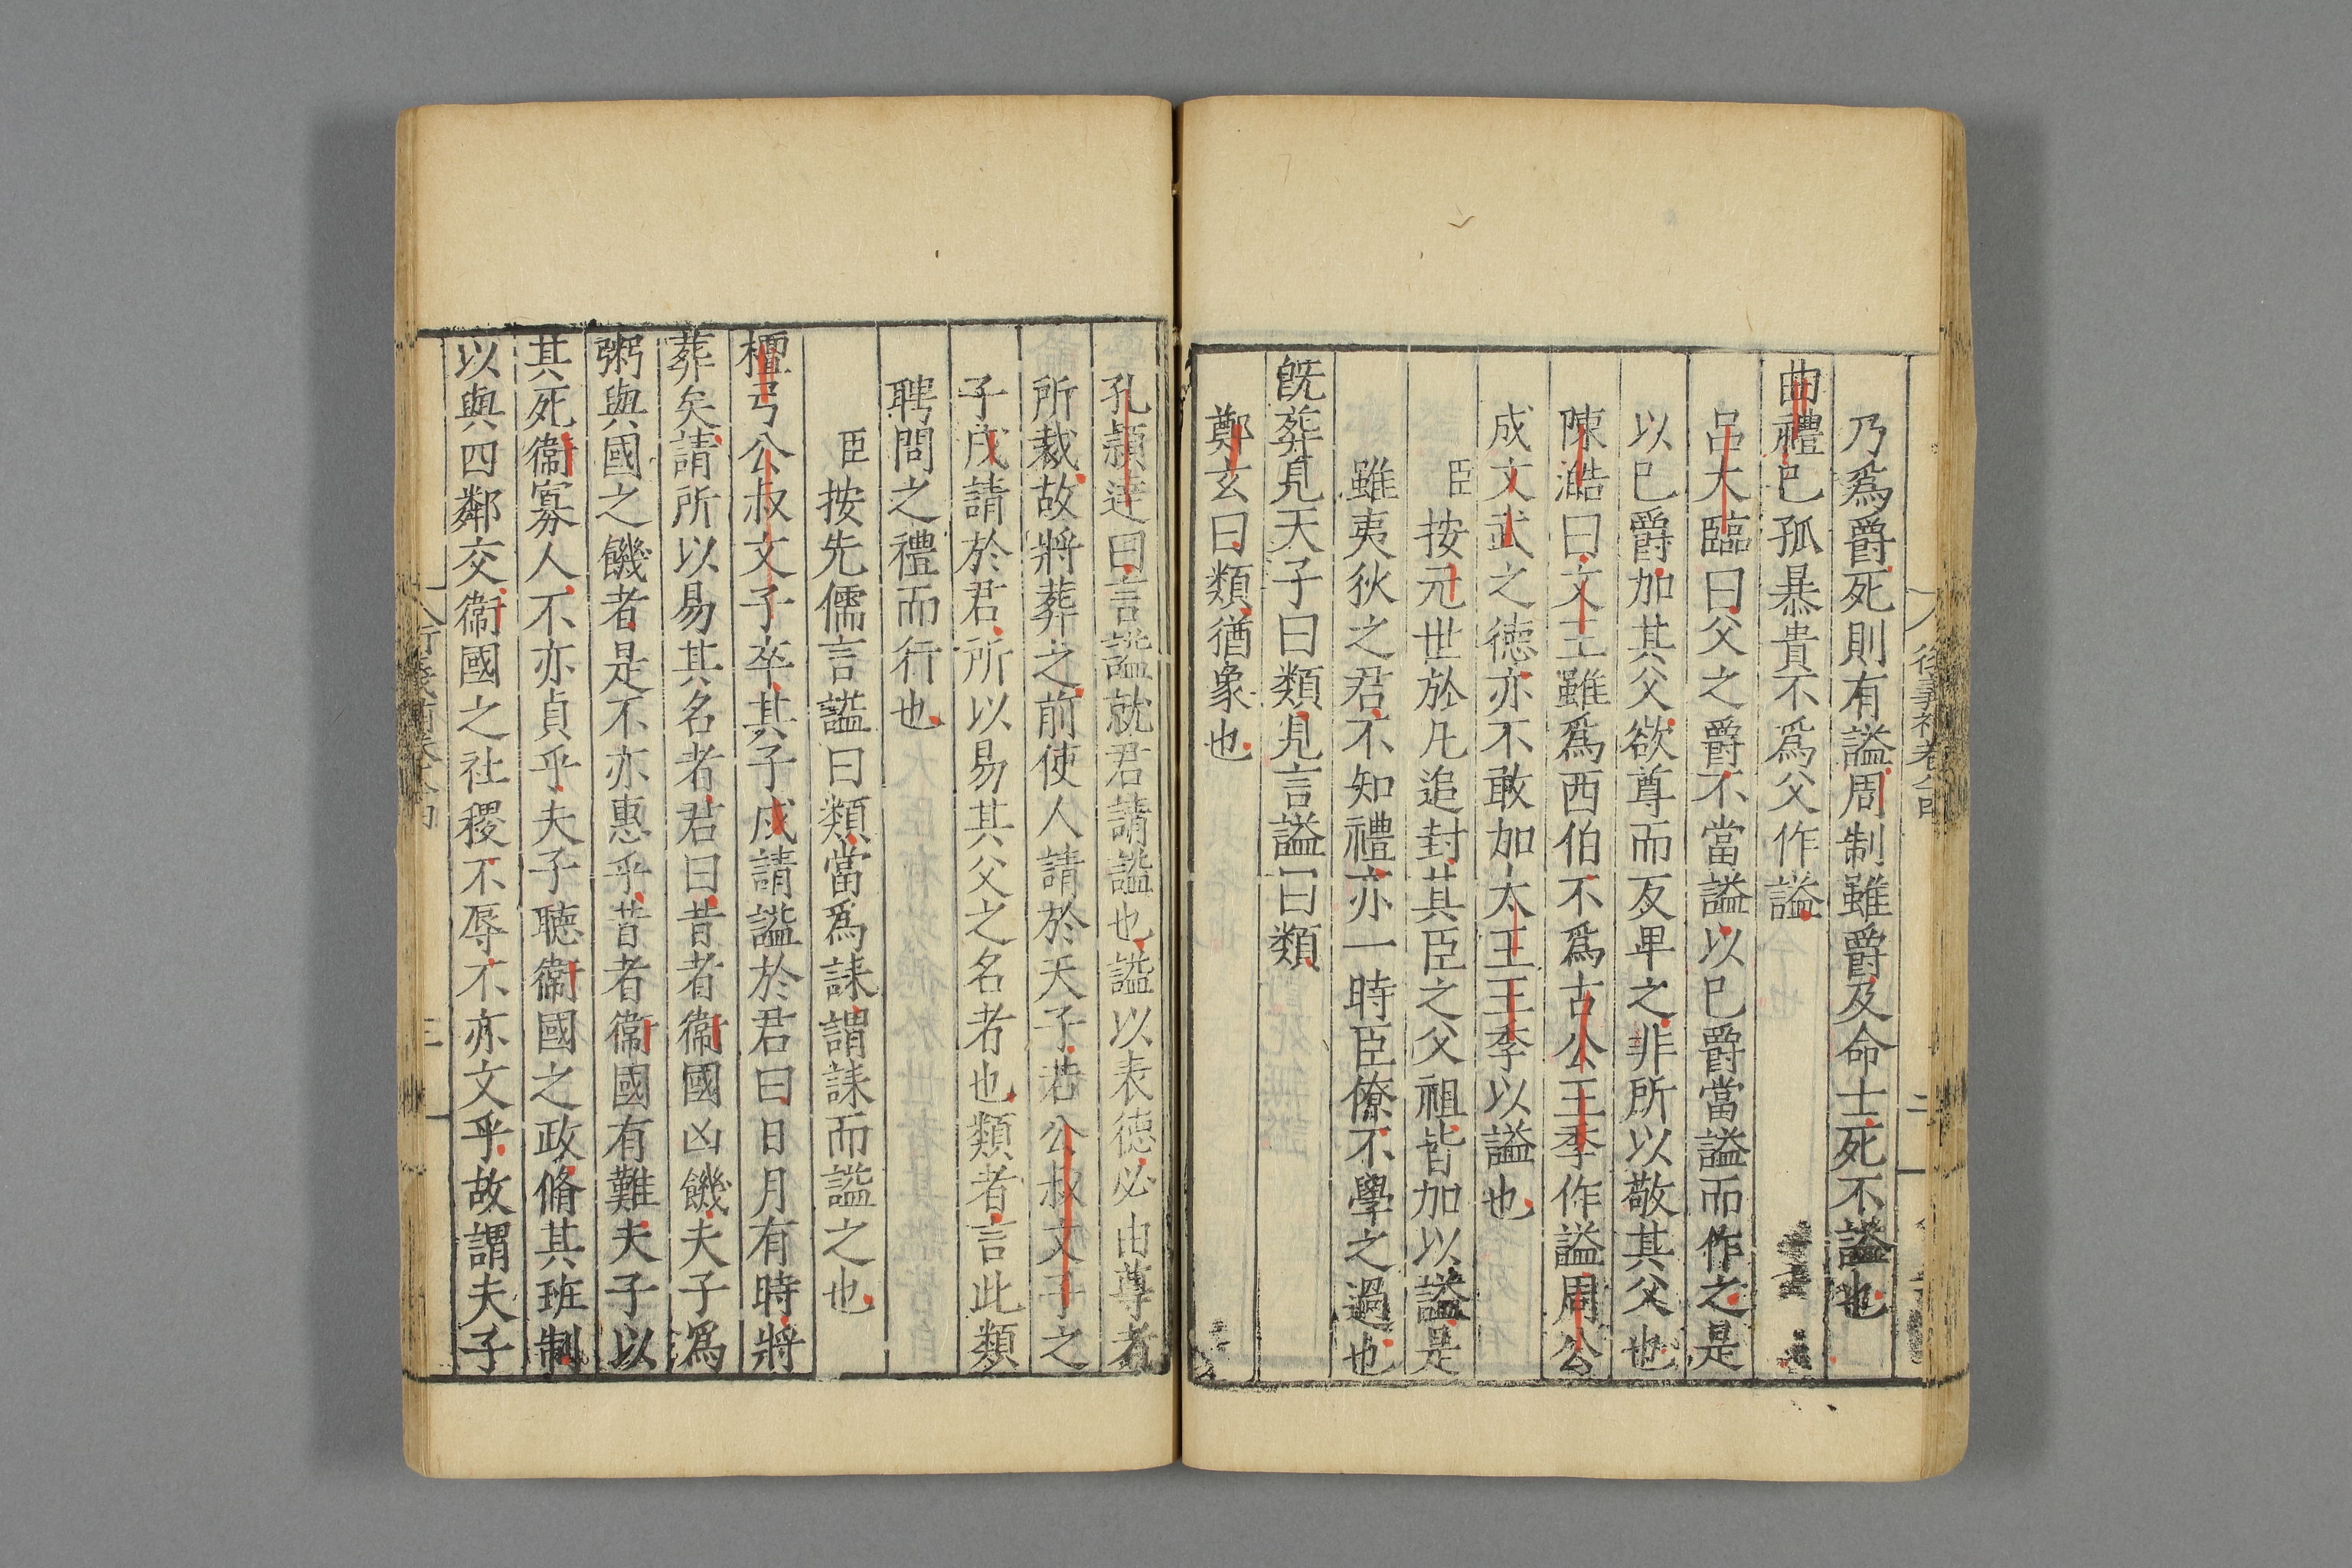 乃爲爵死則有謚周制雖爵及命士死不謚也
曲禮巳孤暴貴不爲父作謚
呂大臨曰父之爵不當謚以巳爵當謚而作之是
以巳爵加其父欲尊而反卑之非所以敬其父也
陳澔曰文王雖爲西伯不爲古公王季作謚周公
成文武之德亦不敢加大王王季以謚也
臣按元世於凡追封其臣之父祖皆加以謚是
雖夷狄之君不知禮亦一時臣僚不學之過也
旣葬見天子曰類見言謚曰類
鄭玄曰類猶象也
孔頴逹曰言謚就君請謚也謚以表德必由尊者
所裁故將葬之前使人請於天子若公叔文子之
子戍請於君所以易其父之名者也類者言此類
聘問之禮而行也
臣按先儒言謚曰類當爲誄謂誄而謚之也
檀弓公叔文子卒其子戍請謚於君曰日月有時將
葬矣請所以易其名者君曰昔者衞國凶饑夫子爲
粥與國之餓者是不亦惠乎昔者衞國有難夫子以
其死衞寡人不亦貞乎夫子聽衞國之政脩其班制
以與四鄰交衞國之社稷不辱不亦文乎故謂夫子
三